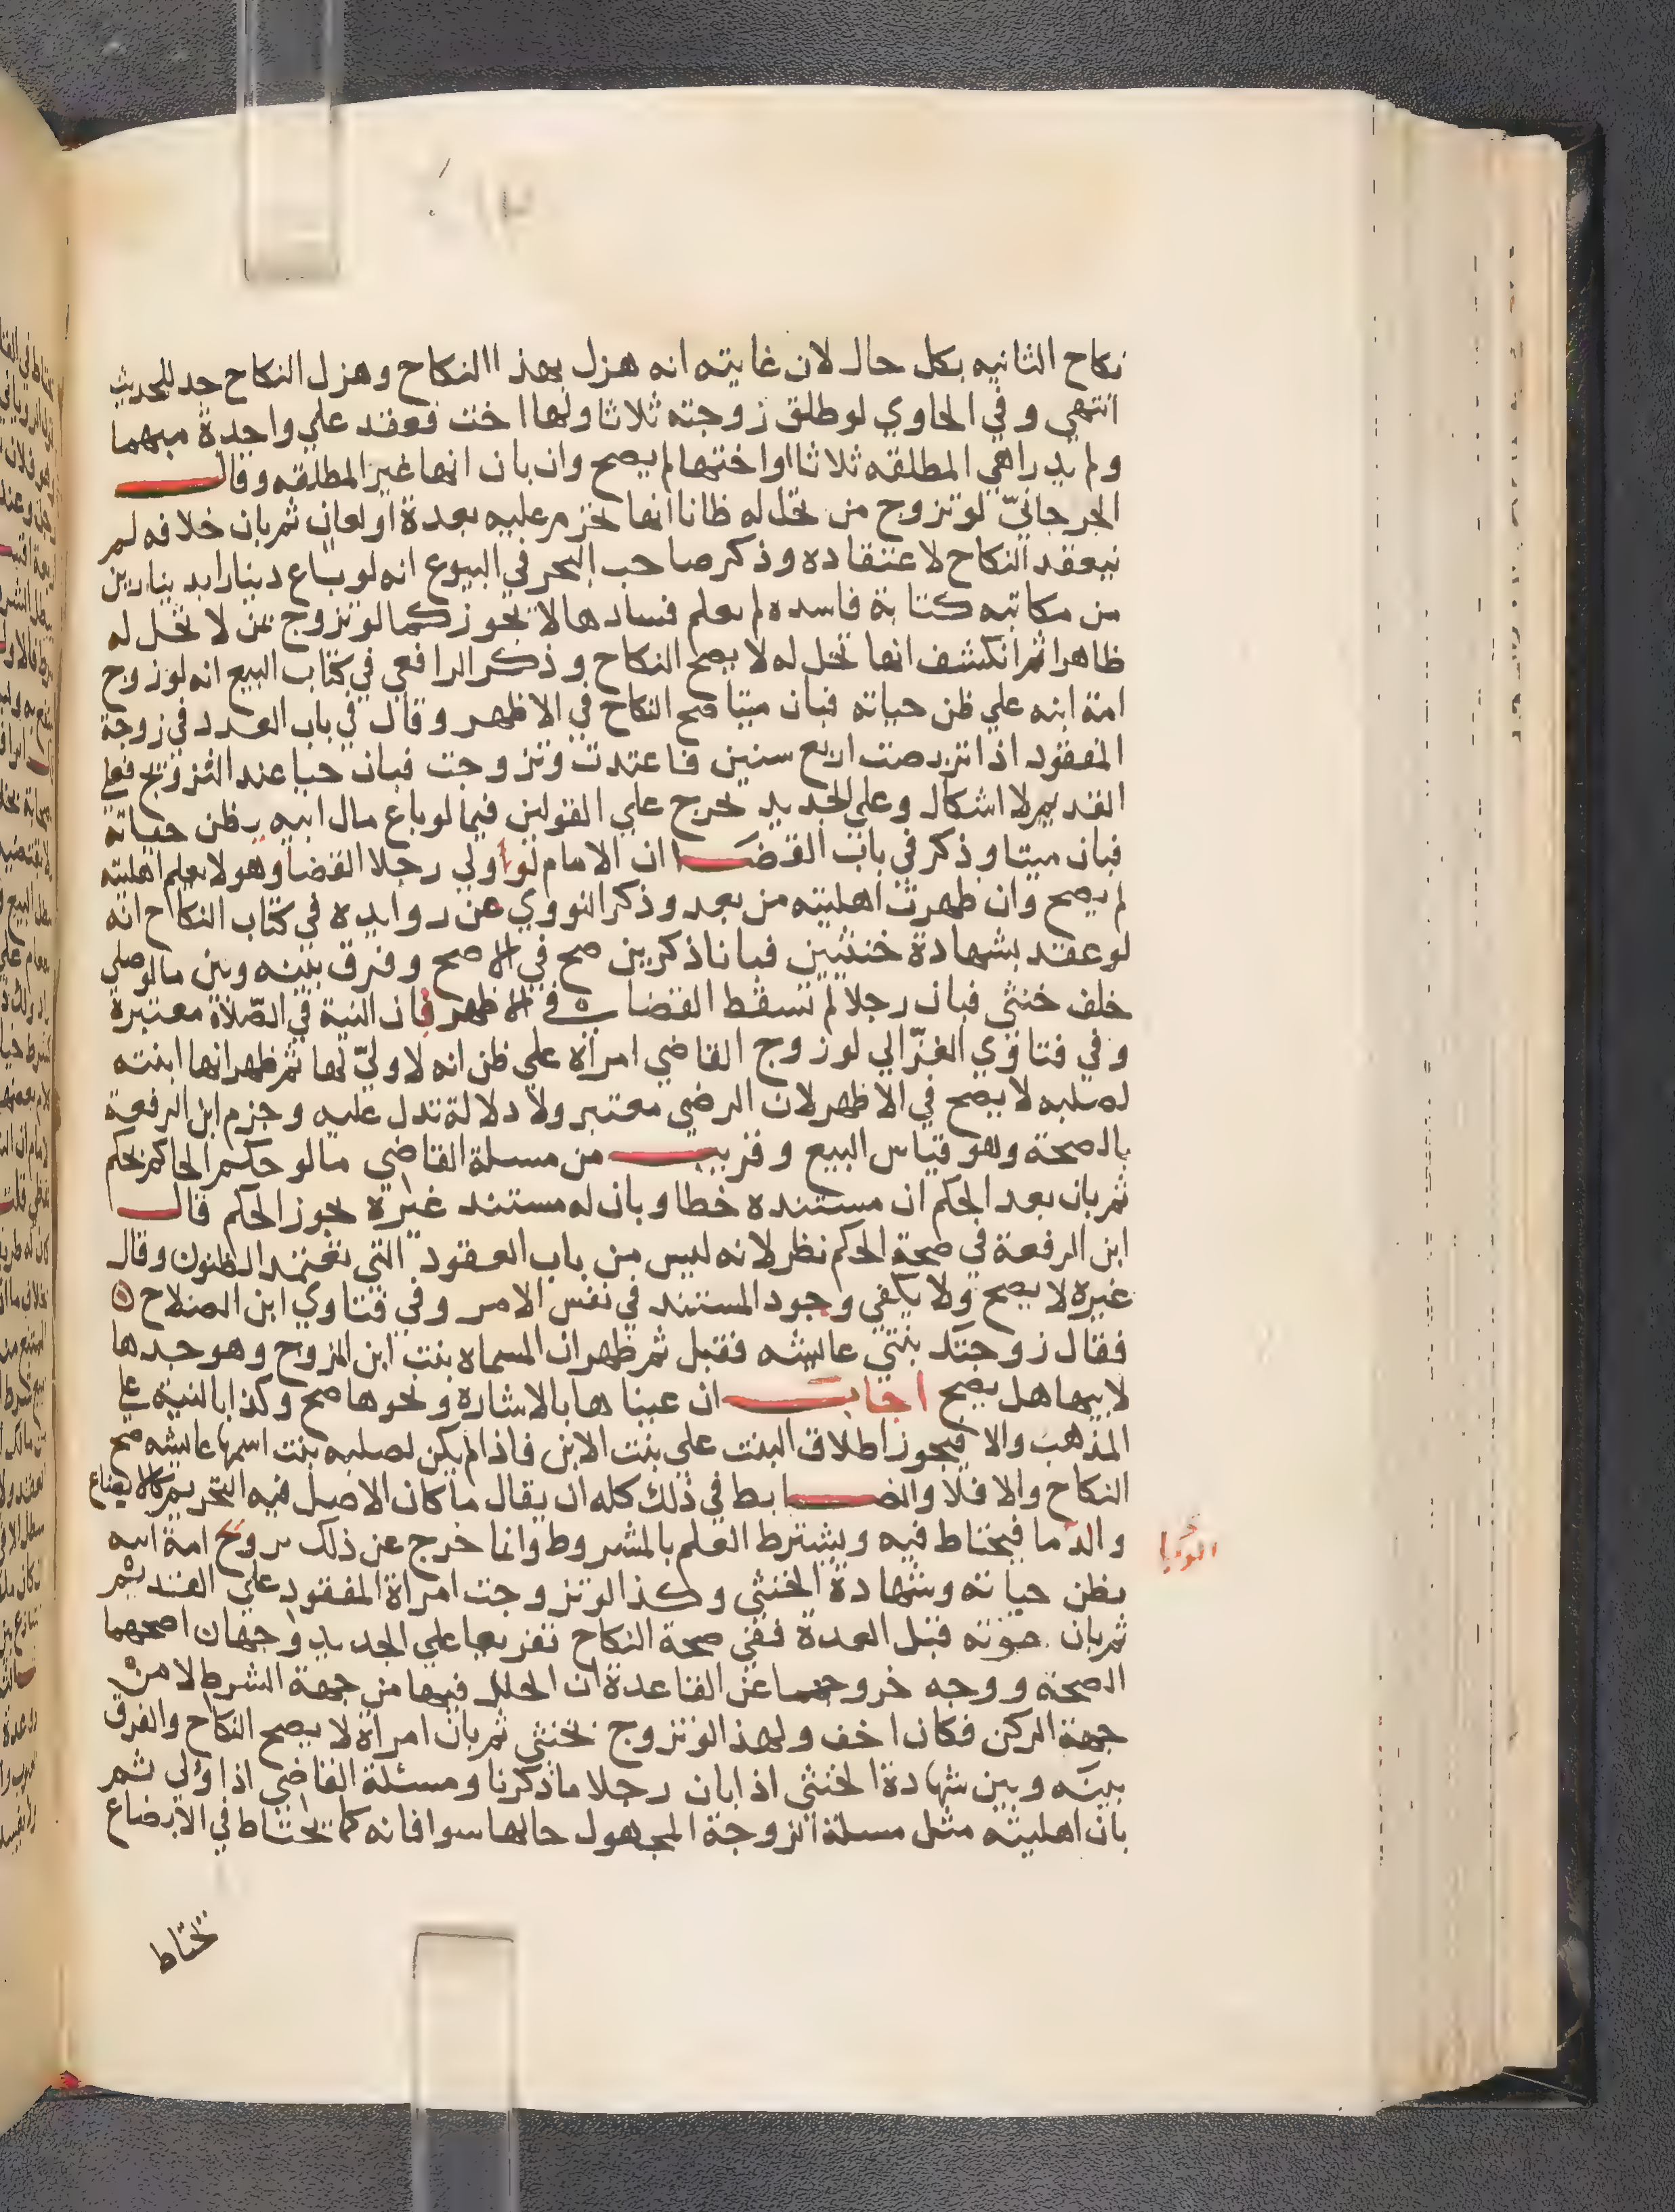 نكاح الثانيه بكل حال لان غايته انه هزل بهذا النكاح وهزل النكاح جد للحديث
انتهي وفي الحاوي لو طلق زوجته ثلاثا ولها اخت فعقد علي واحدة مبهما
ولم يدر اهي المطلقه ثلاثا او اختها لم يصح وان بان انها غير المطلقه وقال
الجرجانيّ لو تزوج من تحل له ظانا انها تحرم عليه بعدة او لعان ثم بان خلافه لم
ينعقد النكاح لاعتقاده وذكر صاحب البحر في البيوع انه لو باع دينارا بدينارين
من مكاتبه كتابة فاسده لم يعلم فسادها لا يجوز كما لو تزوج بمن لا تحل له
ظاهرا ثم انكشف انها تحل له لا يصح النكاح وذكر الرافعي في كتاب البيع انه لو زوج
امة ابيه علي ظن حياته فبان ميتا صح النكاح في الاظهر وقال في باب العدد في زوجة
المفقود اذا تربصت اربع سنين فاعتدت وتزوجت فبان حيا عند التزوج فعلي
القديم لا اشكال وعلي الجديد تخرج علي القولين فيما لو باع مال ابيه بظن حياته
فبان ميتا وذكر في باب القضا ان الامام لو ولي رجلا القضا وهو لا يعلم اهليته
لم يصح وان ظهرت اهليته من بعد وذكر النووي عن روايده في كتاب النكاح انه
لو عقد بشهادة خنثيين فبانا ذكرين صح في الاصح وفرق بينه وبين ما لو صلي
خلف خنثي فبان رجلا لم تسقط القضا في الاظهر فان النية في الصّلاة معتبرة
وفي فتاوي الغزّالي لو زوج القاضي امراة علي ظن انه لا وليّ لها ثم ظهر انها ابنته
لصلبه لا يصح في الاظهر لان الرضي معتبر ولا دلالة تدل عليه وجزم ابن الرفعة
بالصحة وهو قياس البيع وقريب من مسلة القاضي ما لو حكم الحاكم بحكم
ثم بان بعد الحكم ان مستنده خطا وبان له مستند غيره يجوز الحكم قال
ابن الرفعة في صحة الحكم نظر لانه ليس من باب العقود التي تعتمد الظنون وقال
غيره لا يصح ولا يكفي وجود المستند في نفس الامر وفي فتاوي ابن الصلاح
فقال زوجتك بنتي عايشه فقبل ثم ظهر ان المسماه بنت ابن المزوج وهو جدها
لابيها هل يصح اجاب ان عيناها بالاشاره ونحوها صح وكذا بالنية علي
المذهب والا فيجوز اطلاق البنت علي بنت الابن فاذا لم يكن لصلبه بنت اسمها عايشه صح
النكاح والا فلا والضابط في ذلك كله ان يقال ما كان الاصل فيه التحريم كالابضاع
والدما فيحتاط فيه ويشترط العلم بالمشروط وانما خرج عن ذلك تزويج امة ابيه
بظن حياته وشهادة الخنثي وكذا لو تزوجت امراة المفقود علي القديم
ثم بان موته قبل العدة ففي صحة النكاح تفريعا علي الجديد وجهان اصحهما
الصحة ووجه خروجهما عن القاعدة ان الخلل فيها من جهة الشرط لا من
جهة الركن فكان اخف ولهذا لو تزوج بخنثي ثم بان امراة لا يصح النكاح والفرق
بينه وبين شهادة الخنثي اذا بان رجلا ما ذكرنا ومسئلة القاضي اذا ولي ثم
بان اهليته مثل مسلة الزوجة المجهول حالها سوا فانه كما يحتاط في الابضاع
تحتاط